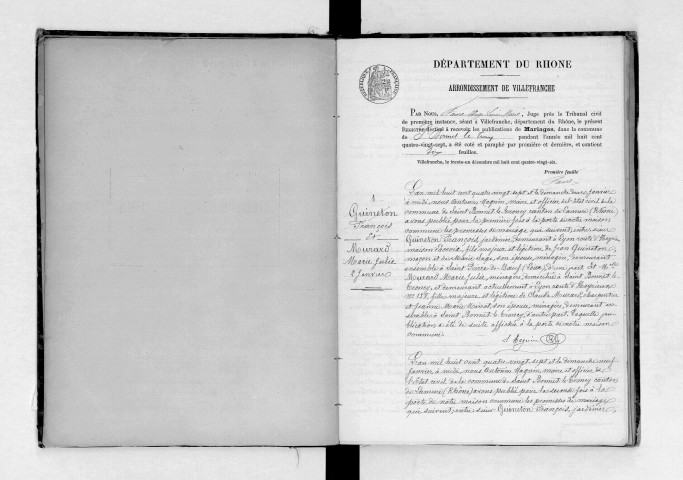 DÉPARTEMENT DU RHONE
ARRONDISSEMENT DE VILLEFRANCHE
PAR NOUS, Juge près le Tribunal civil
de première instance, séant à Villefranche, département du Rhône, le présent
REGISTRE destiné à recevoir les publications de Mariages, dans la commune
de St Bonnet le Troncy pendant l'année mil huit cent
quatre-vingt-sept, a été coté et paraphé par première et dernière, et contient
feuilles.
Villefranche, le trente-un décembre mil huit cent quatre-vingt-six.
Première feuille
1
Quineton
François
et
Murard
Marie Julie
2 Janvier
L'an mil huit cent quatre vingt sept et le dimanche deux janvier
à midi, nous Antonin maire et officier de l'état civil de la
commune de Saint Bonnet le Troncy canton de Lamure (Rhône)
avons publié pour la première fois à la porte de notre maison
commune les promesses de mariage qui suivent, entre sieur
Quineton François, jardinier, demeurant à Lyon route d'
maison fils majeur et légitime de Jean Quineton
maçon et de son épouse, ménagère, demeurant
ensemble à Saint Pierre de Bœuf (Loire) d'une part Et Mlle
Murard Marie Julie, ménagère, domiciliée à Saint Bonnet le
Troncy, et demeurant actuellement à Lyon route d'
No 158, fille majeure et légitime de Claude Murard, charpentier
et Jeanne Marie son épouse, ménagère, demeurant en-
semble à Saint Bonnet le Troncy d'autre part. Laquelle pu-
blication a été de suite affichée à la porte de notre maison
commune.
L'an mil huit cent quatre vingt sept et le dimanche neuf
janvier à midi, nous Antonin maire et officier de
l'état civil de la commune de Saint Bonnet le Troncy canton
de Lamure (Rhône) avons publié pour la seconde fois à la
porte de notre maison commune les promesses de mariage
qui suivent, entre sieur Quineton François, jardinier,